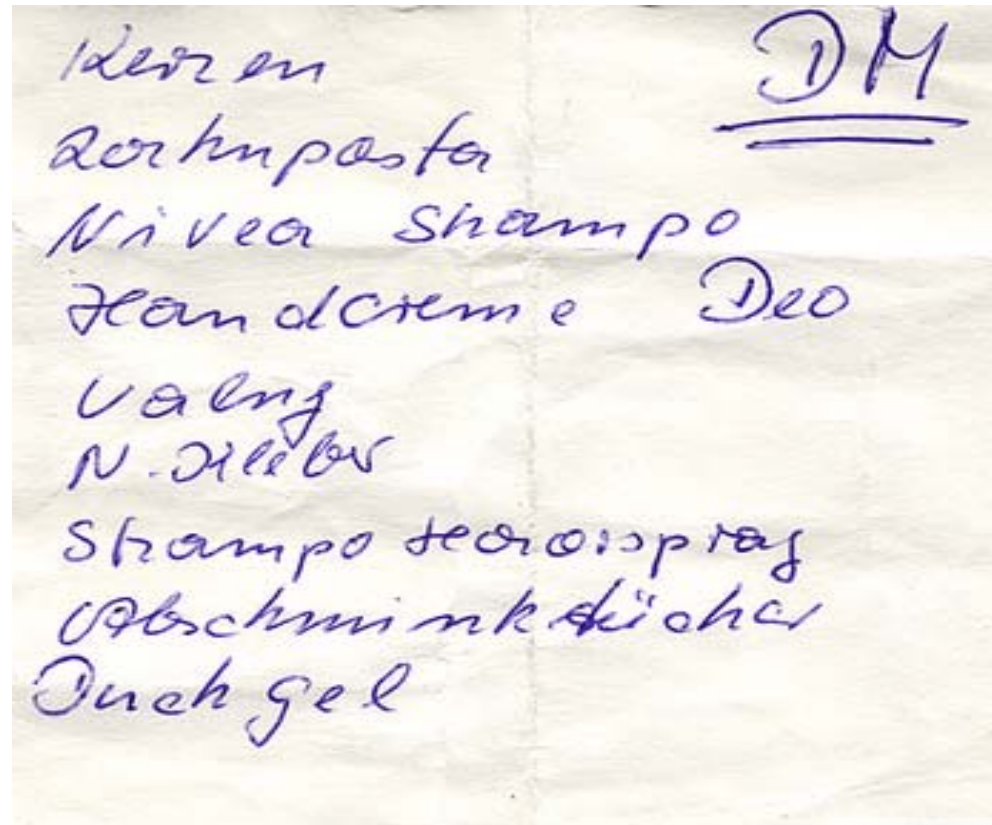 Kerzen
DM
Zahnpasta
Nivea Shampo
Handcreme Deo
Shampo Haarspray
Abschminktücher
Duch gel